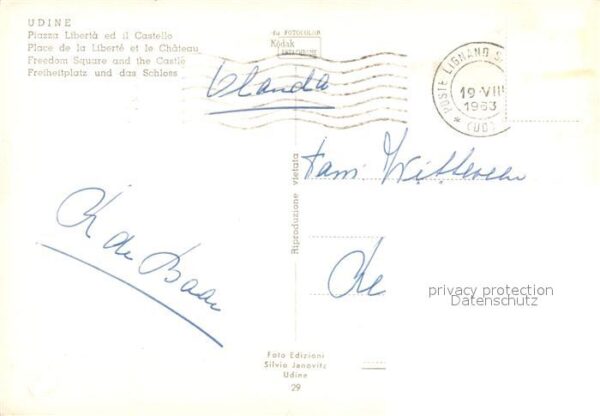 UDINE
Piazza Libertà ed il Castello
Place de la Liberté et le Château
Freedom Square and the Castle
Freiheitplatz und das Schloss
da FOTOCOLOR
Kodak
EKTACHROME
Olanda
POSTE LIGNANO S
19·VIII
1963
* (UD)
Fam. Witteveen
K de Baar
Riproduzione vietata
De
privacy protection
Datenschutz
Foto Edizioni
Silvio Janovitz
Udine
29